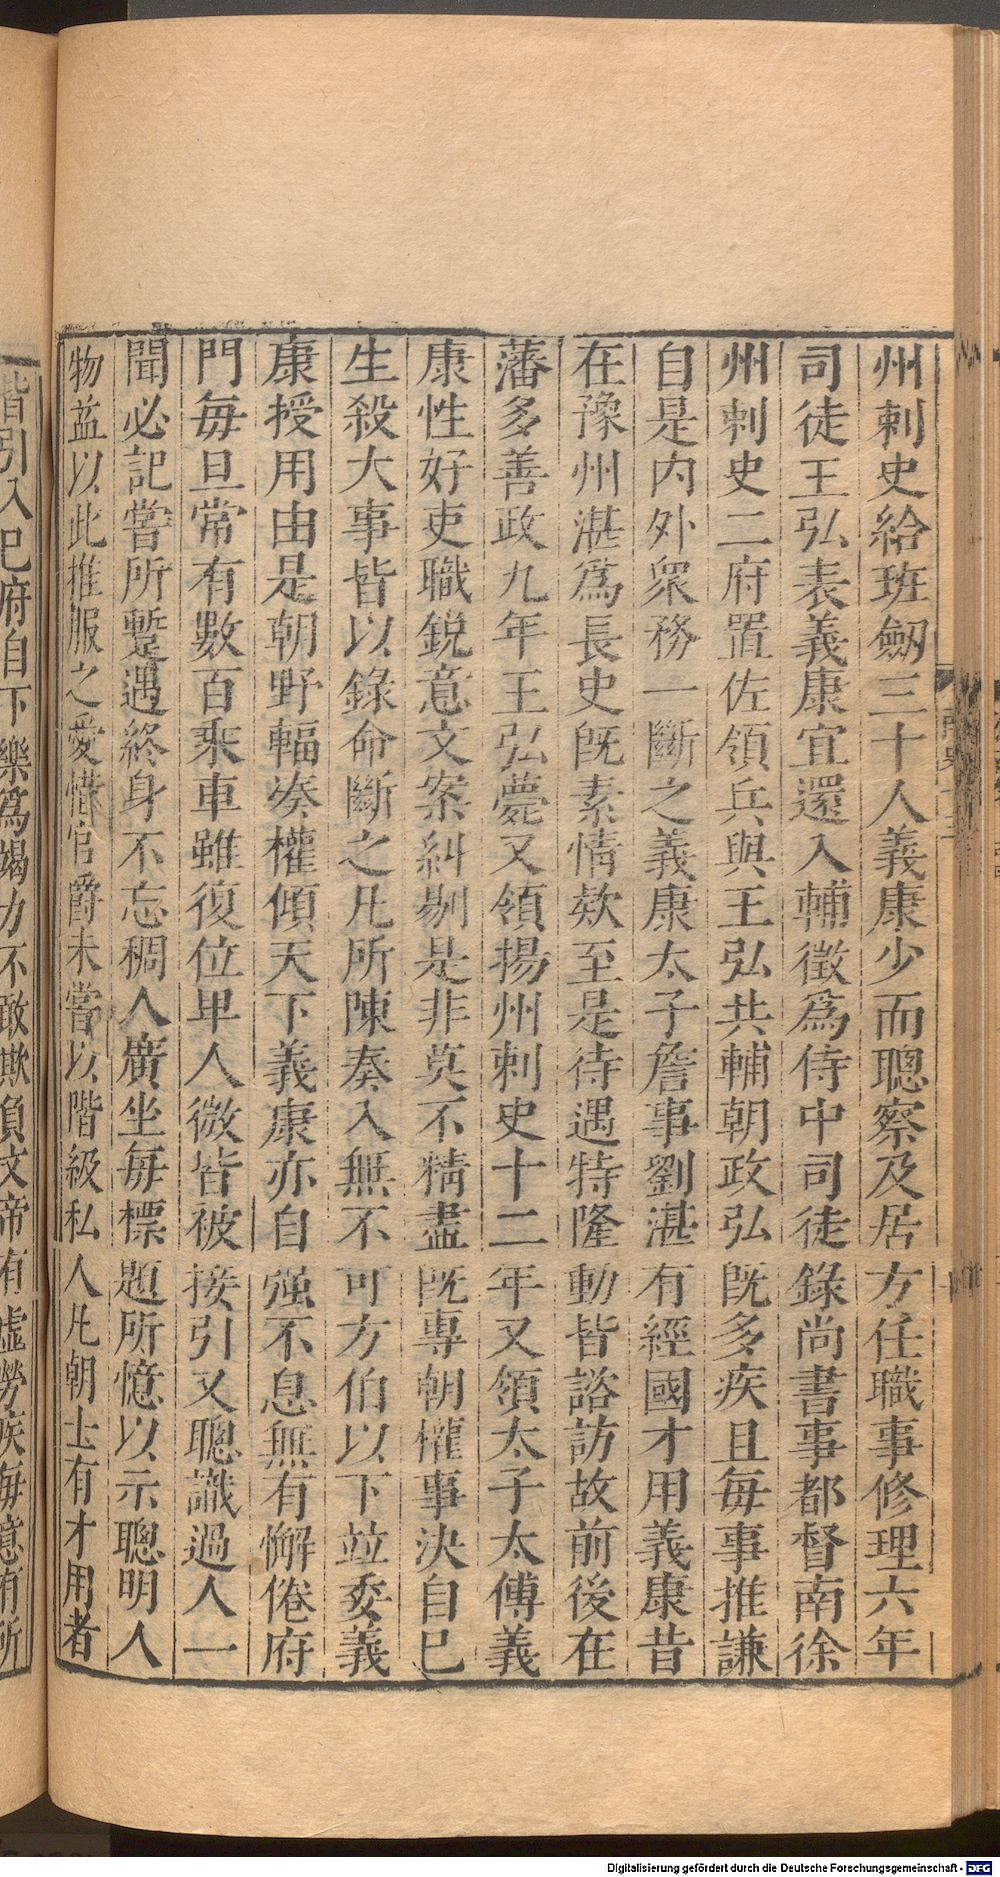 州刺史給班劔三十人義康少而聰察及居方任職事修理六年
司徒王弘表義康宜還入輔徵爲侍中司徒錄尚書事都督南徐
州刺史二府置佐領兵與王弘共輔朝政弘旣多疾且每事推謙
自是内外衆務一斷之義康太子詹事劉湛有經國才用義康昔
在豫州湛爲長史旣素情欵至是待遇特隆動皆諮訪故前後在
藩多善政九年王弘薨又領揚州刺史十二年又領太子太傅義
康性好吏職銳意文案糾剔是非莫不精盡旣專朝權事決自已
生殺大事皆以錄命斷之凡所陳奏入無不可方伯以下竝委義
康授用由是朝野輻湊權傾天下義康亦自强不息無有懈倦府
門每旦常有數百乘車雖復位卑人微皆被接引又聰識過人一
聞必記嘗所蹔遇終身不忘稠人廣坐每標題所憶以示聰明人
物益以此推服之愛惜官爵未嘗以階級私人凡朝士有才用者
皆引入已府自下樂爲竭力不敢欺負文帝有虛勞疾每意有所
Digitalisierung gefördert durch die Deutsche Forschungsgemeinschaft - DFG